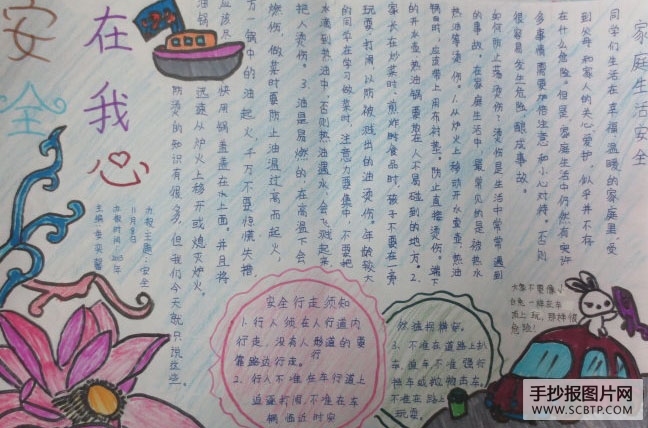 安全
在我心
家庭生活安全
同学们生活在幸福、温暖的家庭里,受
到父母和家人的关心、爱护,似乎并不存
在什么危险。但是,家庭生活中仍然有许
多事情需要倍加注意和小心对待,否则
很容易发生危险,酿成事故。
如何防止烫伤?烫伤是生活中常常遇到
的事故。在家庭生活中,最常见的是被热水、
热油等烫伤。1.从炉火上移动开水壶、热油
锅时,应该带上用布衬垫。防止直接烫伤。端下
的开水壶、热油锅要放在人不易碰到的地方。2.
家长在炒菜时、煎炸时食品时,孩子不要在一旁
玩耍、打闹,以防被溅出的油烫伤。年龄较大
的同学在学习做菜时,注意力要集中,不要把
水滴到热油中,否则热油遇水会飞溅起来,
把人烫伤。3.油是易燃的,在高温下会
燃烧,做菜时要防止油温过高而起火,
万一锅中的油起火,千万不要惊慌失措,
应该尽快用锅盖盖在火上面,并且将
油锅迅速从炉火上移开或熄灭炉火。
防烫的知识有很多,但我们今天就只说这些.
办报主题:安全
11月8日
办报时间:2013年
主编:
安全行走须知
1.行人须在人行道内
行走,没有人形道的要
靠路边行走。
行
2.行人不准在车行道上
追逐打闹,不准在车
辆临近时突
然猛拐横穿。
3.不准在道路上扒
车、追车,不准强行
拦车或抛物击车。
不准在路上
玩耍。
大家不要像小
白兔一样在车
顶上玩,那样很
危险!
手抄报图片网
WWW.SCBTP.COM